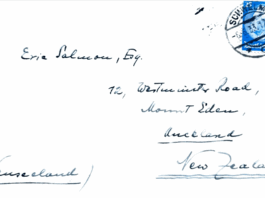 Eric Salmon, Esq.
12, Westminster Road,
Mount Eden,
Auckland
New Zeala